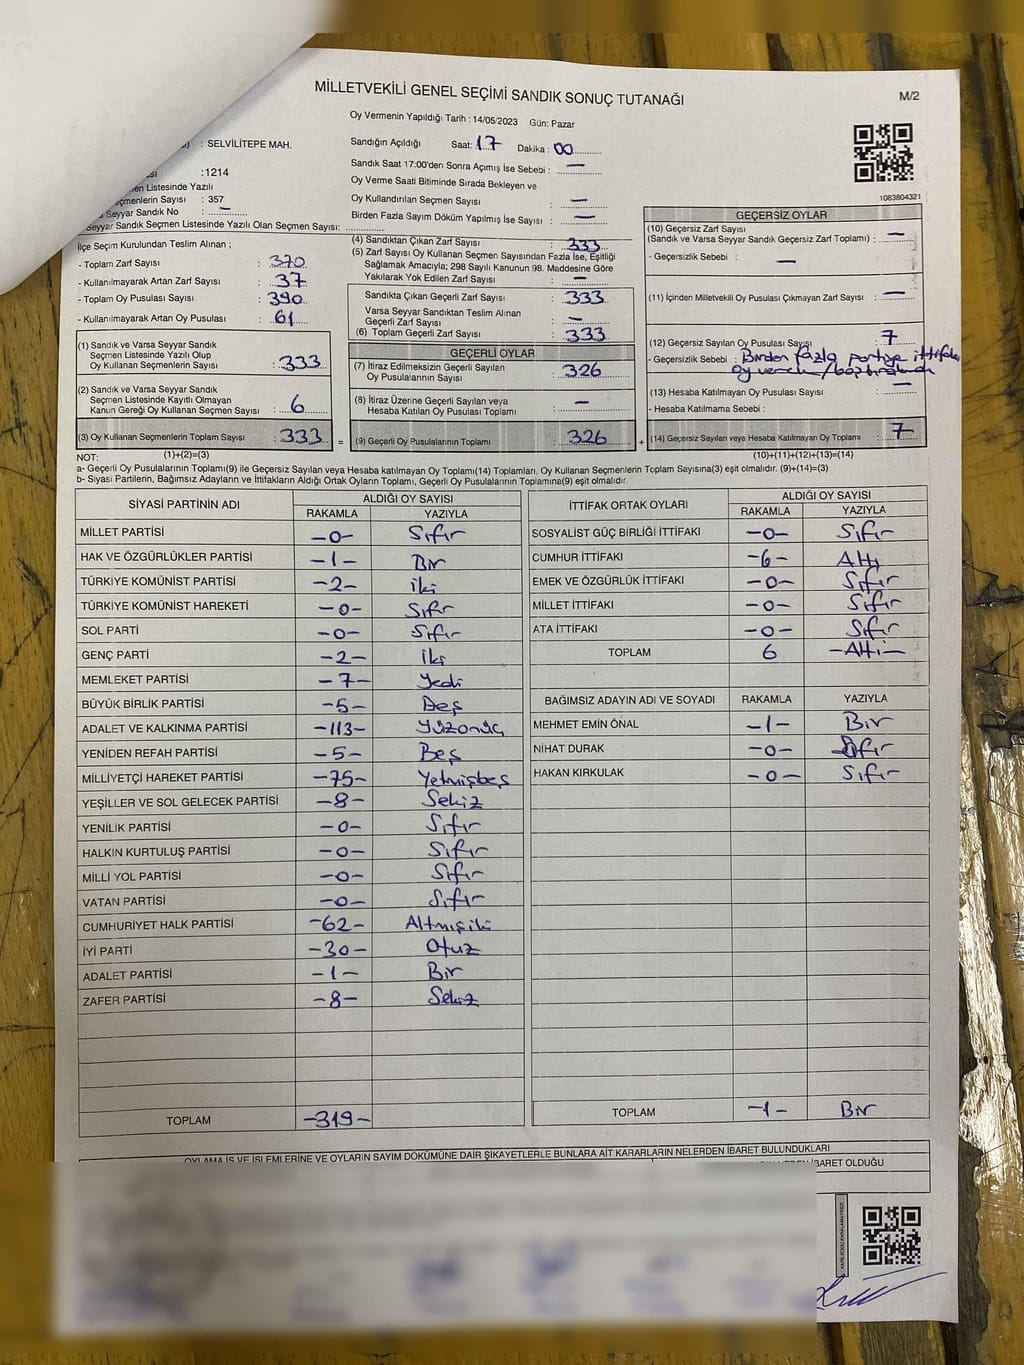 MİLLETVEKİLİ GENEL SEÇİMİ SANDIK SONUÇ TUTANAĞI
M/2
Oy Vermenin Yapıldığı Tarih : 14/05/2023 Gün: Pazar
: SELVİLİTEPE MAH.
Sandığın Açıldığı Saat: 17 Dakika : 00
:1214
Sandık Saat 17:00'den Sonra Açmış İse Sebebi : —
Listesinde Yazılı
Sayısı : 357
Oy Verme Saati Bitiminde Sırada Bekleyen ve
Oy Kullandırılan Seçmen Sayısı : —
Seyyar Sandık No : —
Birden Fazla Sayım Döküm Yapılmış İse Sayısı : —
Seyyar Sandık Seçmen Listesinde Yazılı Olan Seçmen Sayısı:
1083804321
İlçe Seçim Kurulundan Teslim Alınan ;
- Toplam Zarf Sayısı : 370
- Kullanılmayarak Artan Zarf Sayısı : 37
- Toplam Oy Pusulası Sayısı : 390
- Kullanılmayarak Artan Oy Pusulası : 61
(1) Sandık ve Varsa Seyyar Sandık
Seçmen Listesinde Yazılı Olup
Oy Kullanan Seçmenlerin Sayısı : 333
(2) Sandık ve Varsa Seyyar Sandık
Seçmen Listesinde Kayıtlı Olmayan
Kanun Gereği Oy Kullanan Seçmen Sayısı : 6
(3) Oy Kullanan Seçmenlerin Toplam Sayısı : 333
(4) Sandıktan Çıkan Zarf Sayısı : 333
(5) Zarf Sayısı Oy Kullanan Seçmen Sayısından Fazla İse, Eşitliği
Sağlamak Amacıyla; 298 Sayılı Kanunun 98. Maddesine Göre
Yakılarak Yok Edilen Zarf Sayısı : —
Sandıkta Çıkan Geçerli Zarf Sayısı : 333
Varsa Seyyar Sandıktan Teslim Alınan
Geçerli Zarf Sayısı : —
(6) Toplam Geçerli Zarf Sayısı : 333
GEÇERLİ OYLAR
(7) İtiraz Edilmeksizin Geçerli Sayılan
Oy Pusulalarının Sayısı : 326
(8) İtiraz Üzerine Geçerli Sayılan veya
Hesaba Katılan Oy Pusulası Toplamı : —
= (9) Geçerli Oy Pusulalarının Toplamı : 326 +
GEÇERSİZ OYLAR
(10) Geçersiz Zarf Sayısı
(Sandık ve Varsa Seyyar Sandık Geçersiz Zarf Toplamı) : —
- Geçersizlik Sebebi : —
(11) İçinden Milletvekili Oy Pusulası Çıkmayan Zarf Sayısı : —
(12) Geçersiz Sayılan Oy Pusulası Sayısı : 7
- Geçersizlik Sebebi : Birden fazla partiye ittifaka
oy
(13) Hesaba Katılmayan Oy Pusulası Sayısı : —
- Hesaba Katılmama Sebebi :
(14) Geçersiz Sayılan veya Hesaba Katılmayan Oy Toplamı : 7
NOT: (1)+(2)=(3) (10)+(11)+(12)+(13)=(14)
a- Geçerli Oy Pusulalarının Toplamı(9) ile Geçersiz Sayılan veya Hesaba katılmayan Oy Toplamı(14) Toplamları, Oy Kullanan Seçmenlerin Toplam Sayısına(3) eşit olmalıdır. (9)+(14)=(3)
b- Siyasi Partilerin, Bağımsız Adayların ve İttifakların Aldığı Ortak Oyların Toplamı, Geçerli Oy Pusulalarının Toplamına(9) eşit olmalıdır.
SİYASİ PARTİNİN ADI ALDIĞI OY SAYISI
RAKAMLA YAZIYLA
MİLLET PARTİSİ -0- Sıfır
HAK VE ÖZGÜRLÜKLER PARTİSİ -1- Bir
TÜRKİYE KOMÜNİST PARTİSİ -2- iki
TÜRKİYE KOMÜNİST HAREKETİ -0- Sıfır
SOL PARTİ -0- Sıfır
GENÇ PARTİ -2- İki
MEMLEKET PARTİSİ -7- Yedi
BÜYÜK BİRLİK PARTİSİ -5- Beş
ADALET VE KALKINMA PARTİSİ -113- Yüzonüç
YENİDEN REFAH PARTİSİ -5- Beş
MİLLİYETÇİ HAREKET PARTİSİ -75- Yetmişbeş
YEŞİLLER VE SOL GELECEK PARTİSİ -8- Sekiz
YENİLİK PARTİSİ -0- Sıfır
HALKIN KURTULUŞ PARTİSİ -0- Sıfır
MİLLİ YOL PARTİSİ -0- Sıfır
VATAN PARTİSİ -0- Sıfır
CUMHURİYET HALK PARTİSİ -62- Altmışiki
İYİ PARTİ -30- Otuz
ADALET PARTİSİ -1- Bir
ZAFER PARTİSİ -8- Sekiz
TOPLAM -319-
İTTİFAK ORTAK OYLARI ALDIĞI OY SAYISI
RAKAMLA YAZIYLA
SOSYALİST GÜÇ BİRLİĞİ İTTİFAKI -0- Sıfır
CUMHUR İTTİFAKI -6- Altı
EMEK VE ÖZGÜRLÜK İTTİFAKI -0- Sıfır
MİLLET İTTİFAKI -0- Sıfır
ATA İTTİFAKI -0- Sıfır
TOPLAM 6 -Altı-
BAĞIMSIZ ADAYIN ADI VE SOYADI RAKAMLA YAZIYLA
MEHMET EMİN ÖNAL -1- Bir
NİHAT DURAK -0- Sıfır
HAKAN KIRKULAK -0- Sıfır
TOPLAM -1- Bir
OYLAMA İŞ VE İŞLEMLERİNE VE OYLARIN SAYIM DÖKÜMÜNE DAİR ŞİKAYETLERLE BUNLARA AİT KARARLARIN NELERDEN İBARET BULUNDUKLARI
İBARET OLDUĞU